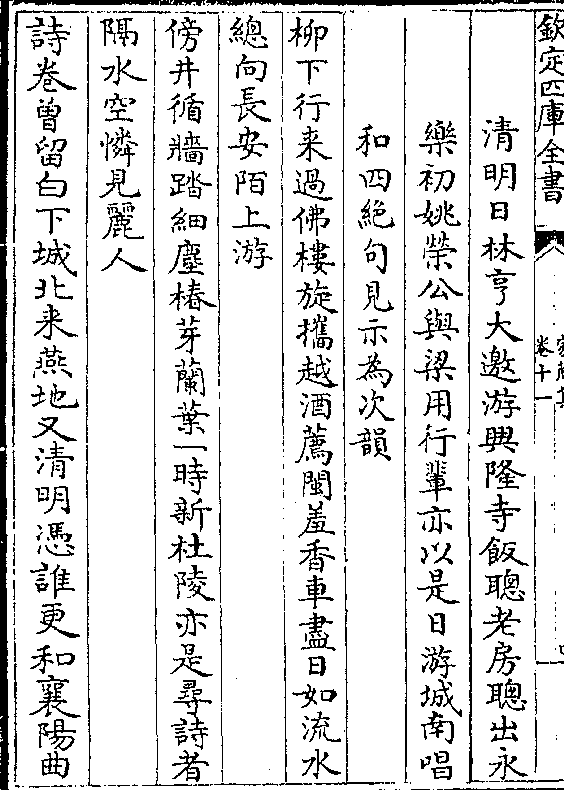 欽定四庫全書
卷十一
清明日林亨大邀游興隆寺飯聰老房聰出永
樂初姚榮公與梁用行輩亦以是日游城南唱
和四絶句見示為次韻
柳下行来過佛樓旋攜越酒薦閩羞香車盡日如流水
總向長安陌上游
傍井循牆踏細塵椿芽蘭葉一時新杜陵亦是尋詩者
隔水空憐見麗人
詩巻曽留白下城北来燕地又清明憑誰更和襄陽曲